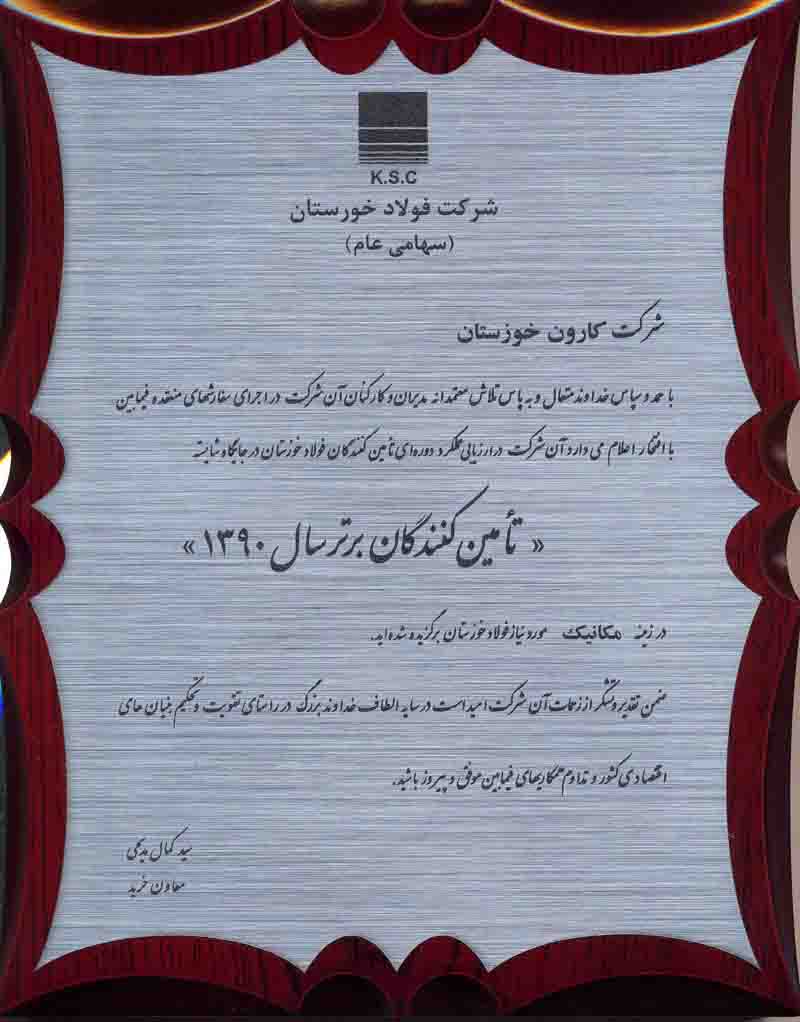 K.S.C
شرکت فولاد خوزستان
(سهامی عام)
شرکت کارون خوزستان
با حمد و سپاس خداوند متعال و به پاس تلاش معتمدانه مدیران و کارکنان آن شرکت در اجرای سفارشهای منعقده فیمابین
با افتخار اعلام می دارد آن شرکت در ارزیابی عملکرد دوره ای تأمین کنندگان فولاد خوزستان در جایگاه شایسته
« تأمین کنندگان برتر سال ۱۳۹۰ »
در زمینه مکانیک مورد نیاز فولاد خوزستان برگزیده شده اید.
ضمن تقدیر و تشکر از زحمات آن شرکت امید است در سایه الطاف خداوند بزرگ در راستای تقویت و تحکیم بنیان های
اقتصادی کشور و تداوم همکاریهای فیمابین موفق و پیروز باشید.
سید کمال
معاون خرید